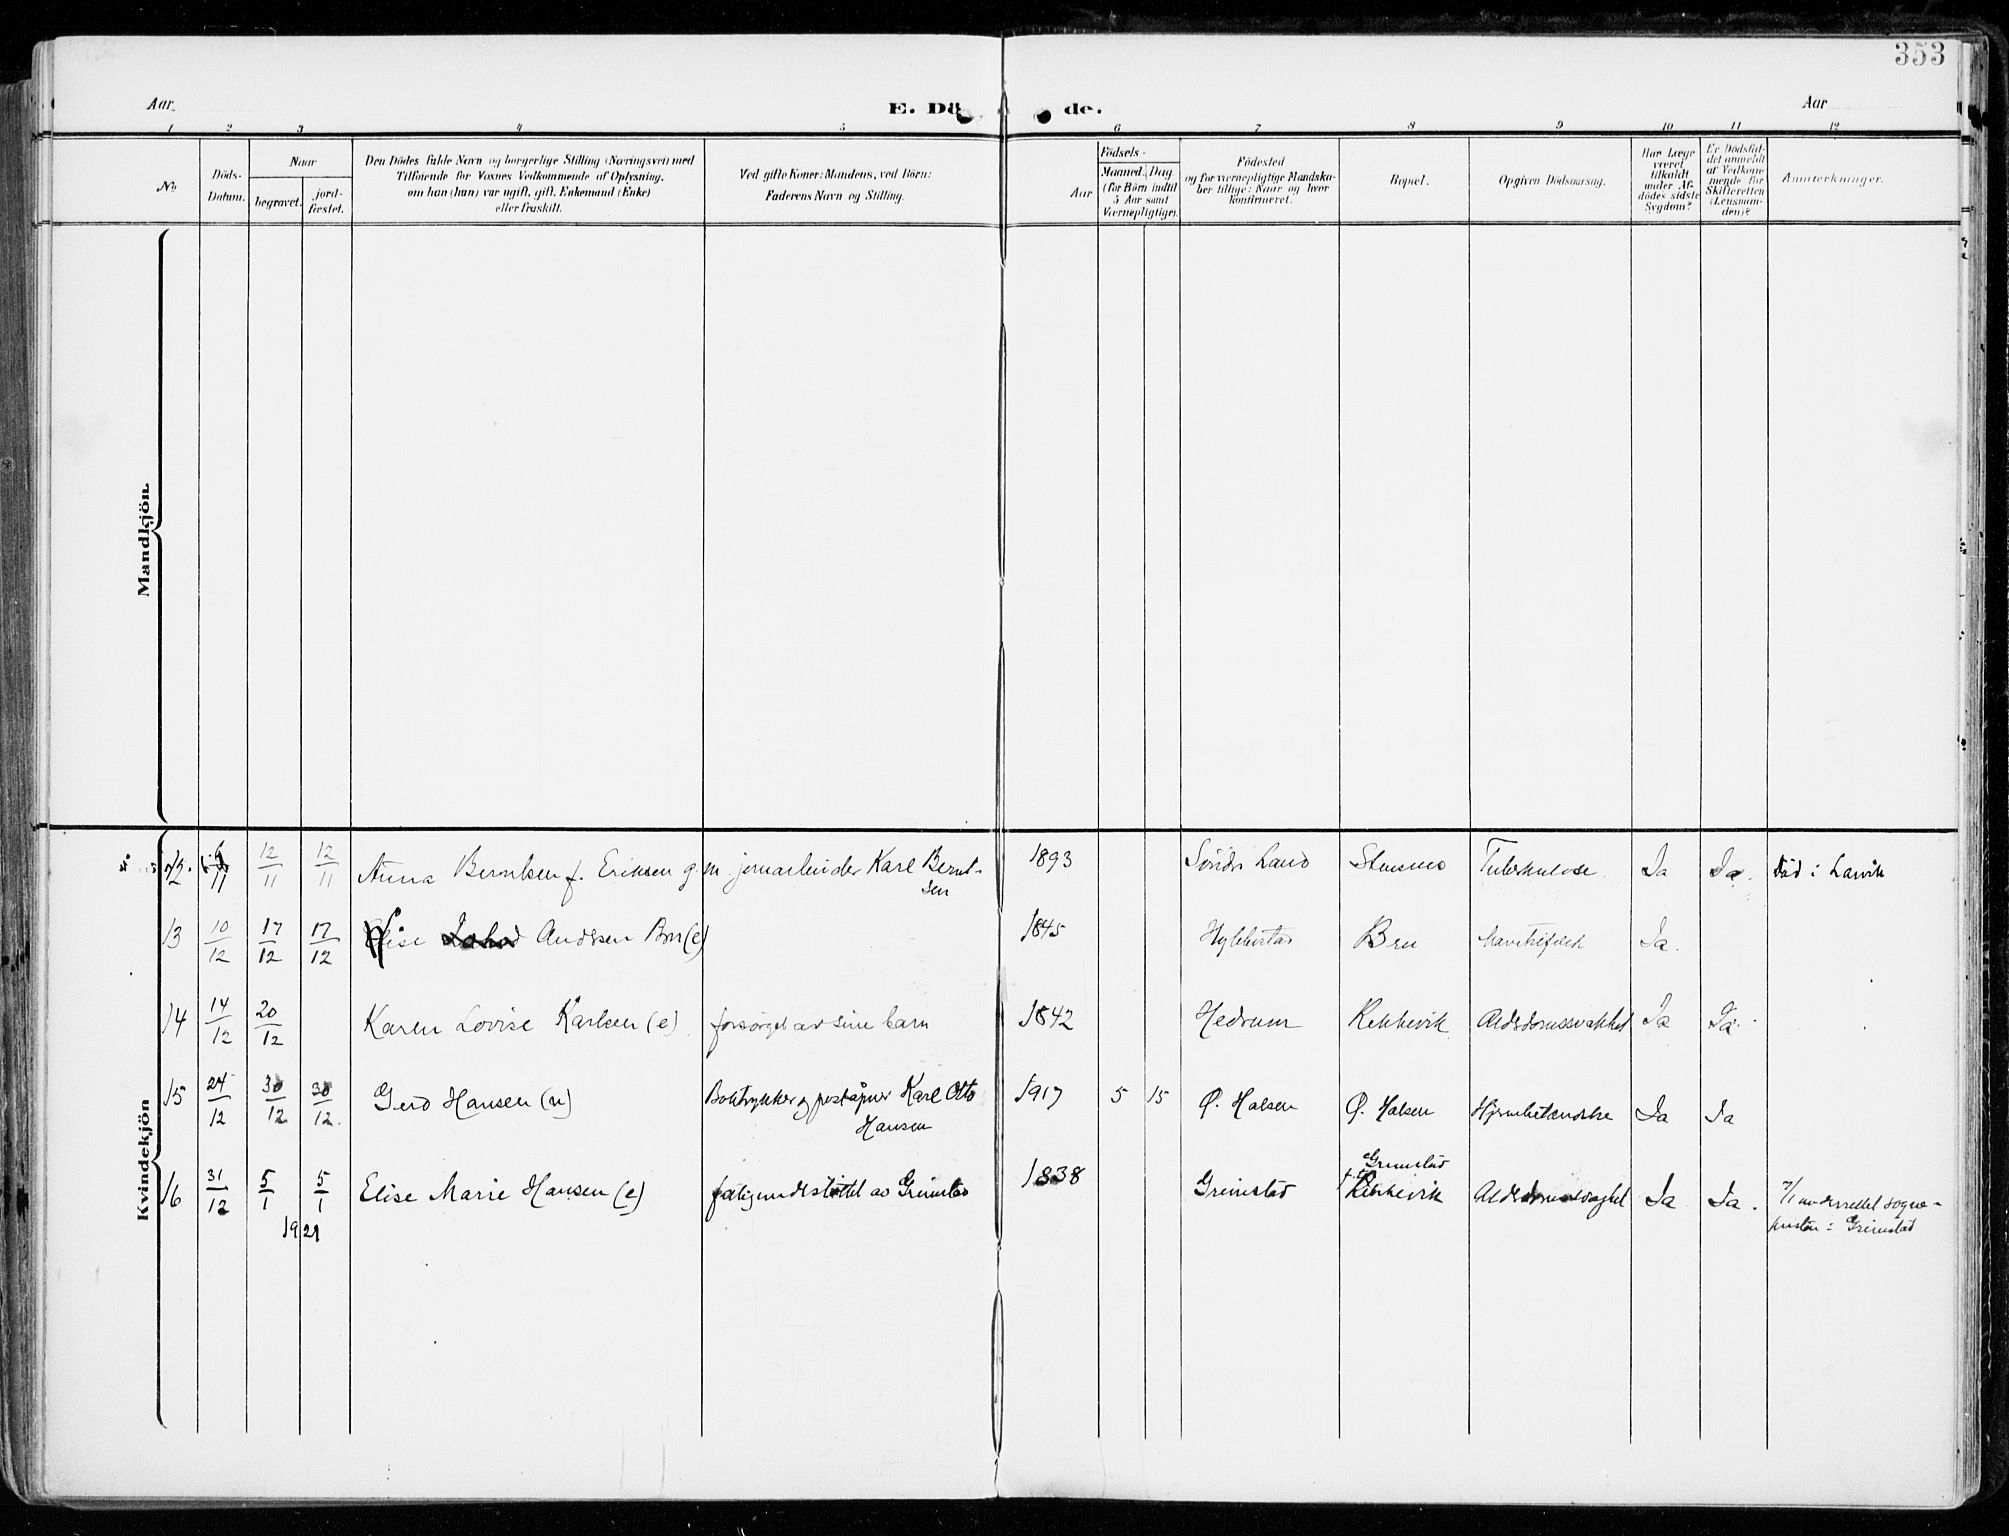 353
Aar
E. Dö de.
Aar
1 2 3 4 5 6 7 8 9 10 11 12
No
Döds-
Datum.
Naar
begravet.
jord-
fæstet.
Den Dödes fulde Navn og borgerlige Stilling (Næringsvei) med
Tilföiende for Voxnes Vedkommende af Oplysning,
om han (hun) var ugift, gift, Enkemand (Enke)
eller fraskilt.
Ved gifte Koner: Mandens, ved Börn:
Faderens Navn og Stilling.
Födsels-
Aar
Maaned. Dag
(for Börn indtil
5 Aar samt
Værnepligtige).
Födested
og for værnepligtige Mandska-
ber tillige: Naar og hvor
konfirmeret.
Bopæl.
Opgiven Dödsaarsag.
Har Læge
været
tilkaldt
under Af-
dödes sidste
Sygdom?
Er Dödsfal-
det anmeldt
af Vedkom-
mende for
Skifteretten
(Lensman-
den)?
Anmærkninger.
Mandkjön.
Kvindekjön
12. 6/11 12/11 12/11 Anna Berntsen f. Eriksen g. m. jernarbeider Karl Bernt-
sen
1893 Søndr Land Stensnes Tuberkulose. Ja Ja. død i Larvik
13 10/12 17/12 17/12 Andersen Bru (e) 1845 Hylestad Bru Ja.
14 14/12 20/12 Karen Lovise Karlsen (e) forsørget av sine barn 1842 Hedrum Rekkevik Alderdomssvakhet Ja Ja.
15 24/12 30/12 30/12. Gerd Hansen (u) Boktrykker og postaapner Karl Otto
Hansen
1917 5 15 Ø. Halsen Ø. Halsen Hjernebetændelse Ja Ja
16 31/12 5/1 5/1 Elise Marie Hansen (e) fatigunderstöttet av Grimstad 1838 Grimstad Grimstad
Rekkevik Ja Ja. 7/1 underrettet sogne-
presten i Grimstad
1921